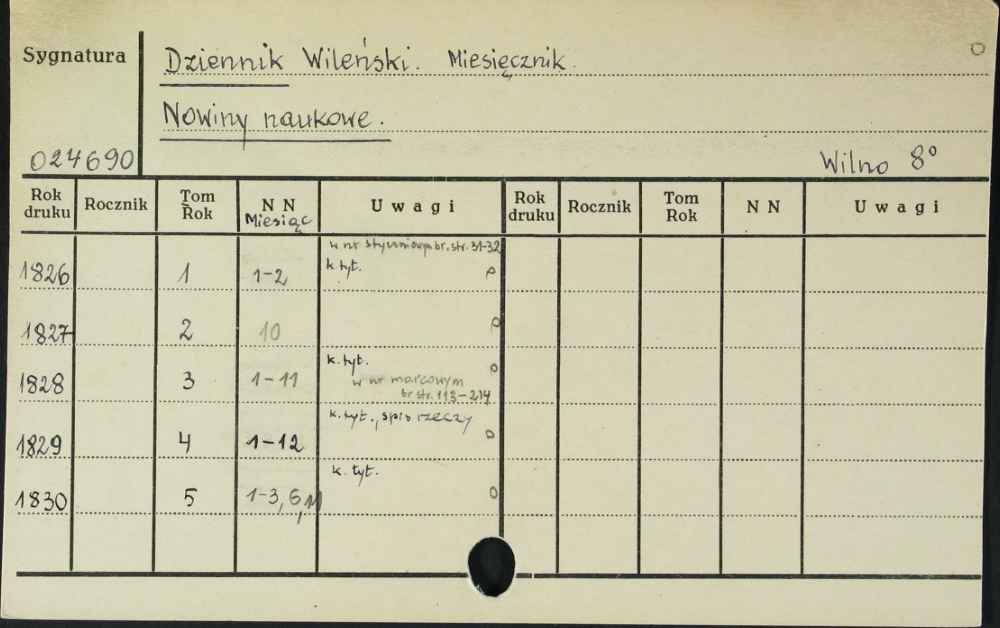 Sygnatura
Dziennik Wileński. Miesięcznik.
Nowiny naukowe.
024690
Wilno 8°
Rok druku Rocznik Tom Rok N N Miesiąc Uwagi Rok druku Rocznik Tom Rok N N Uwagi
w nr styczniowym br. str. 31-32
1826 1 1-2 k. tyt.
1827 2 10
k. tyt.
1828 3 1-11 w nr marcowym
br str. 113-214
k. tyt., spis rzeczy
1829 4 1-12
k. tyt.
1830 5 1-3, 6, 11